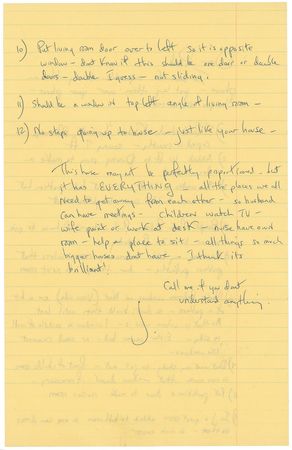 10) Put living room door over to left so it is opposite
window - dont know if this should be one door or double
doors - double I guess - not sliding.
11) Should be a window in top left angle of living room -
12) No steps going up to house - just like your house -
This house may not be perfectly proportioned - but
it has EVERYTHING - all the places we all
need to get away from each other - so husband
can have meetings - children watch TV -
wife paint or work at desk - nurse have own
room - help a place to sit - all things so much
bigger houses dont have - I think its
brilliant!
Call me if you dont
understand anything.
J.